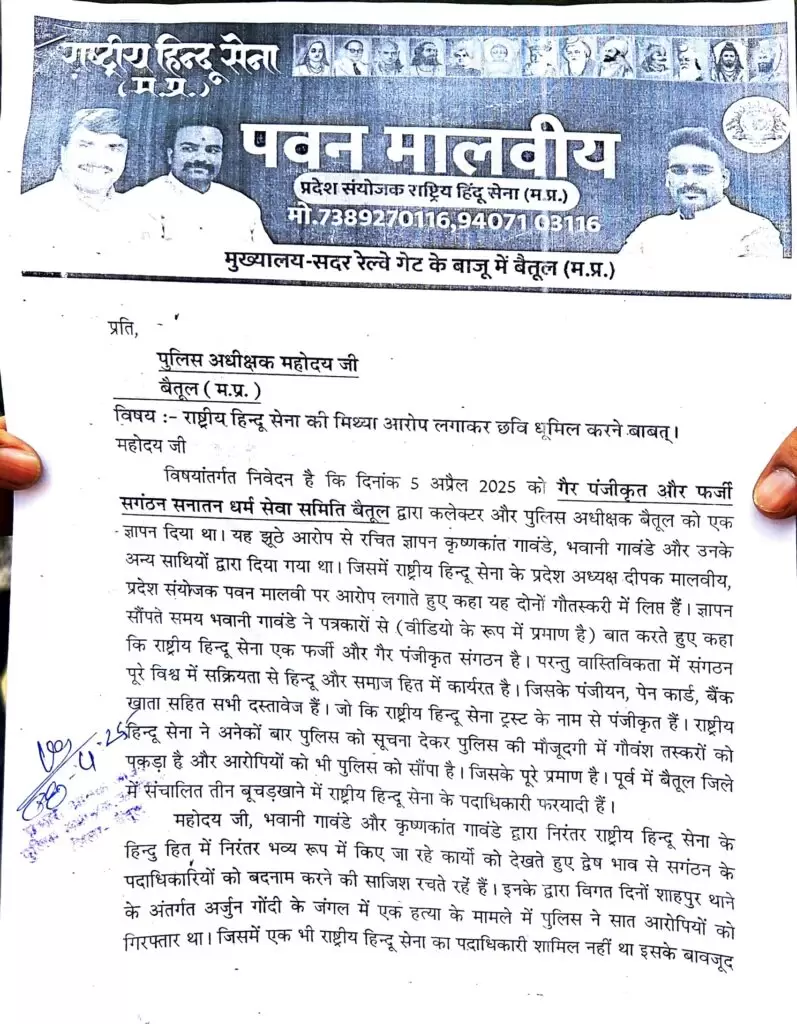 राष्ट्रीय हिन्दू सेना
(म.प्र.)
पवन मालवीय
प्रदेश संयोजक राष्ट्रिय हिंदू सेना (म.प्र.)
मो.7389270116,94071 03116
मुख्यालय-सदर रेल्वे गेट के बाजू में बैतूल (म.प्र.)
प्रति,
पुलिस अधीक्षक महोदय जी
बैतूल ( म.प्र. )
विषय :- राष्ट्रीय हिन्दू सेना की मिथ्या आरोप लगाकर छवि धूमिल करने बाबत्।
महोदय जी
विषयांतर्गत निवेदन है कि दिनांक 5 अप्रैल 2025 को गैर पंजीकृत और फर्जी
सगंठन सनातन धर्म सेवा समिति बैतूल द्वारा कलेक्टर और पुलिस अधीक्षक बैतूल को एक
ज्ञापन दिया था। यह झूठे आरोप से रचित ज्ञापन कृष्णकांत गावंडे, भवानी गावंडे और उनके
अन्य साथियों द्वारा दिया गया था। जिसमें राष्ट्रीय हिन्दू सेना के प्रदेश अध्यक्ष दीपक मालवीय,
प्रदेश संयोजक पवन मालवी पर आरोप लगाते हुए कहा यह दोनों गौतस्करी में लिप्त हैं। ज्ञापन
सौंपते समय भवानी गावंडे ने पत्रकारों से (वीडियो के रूप में प्रमाण है) बात करते हुए कहा
कि राष्ट्रीय हिन्दू सेना एक फर्जी और गैर पंजीकृत संगठन है। परन्तु वास्तिविकता में संगठन
पूरे विश्व में सक्रियता से हिन्दू और समाज हित में कार्यरत है। जिसके पंजीयन, पेन कार्ड, बैंक
खाता सहित सभी दस्तावेज हैं। जो कि राष्ट्रीय हिन्दू सेना ट्रस्ट के नाम से पंजीकृत हैं। राष्ट्रीय
हिन्दू सेना ने अनेकों बार पुलिस को सूचना देकर पुलिस की मौजूदगी में गौवंश तस्करों को
पकड़ा है और आरोपियों को भी पुलिस को सौंपा है। जिसके पूरे प्रमाण है। पूर्व में बैतूल जिले
में संचालित तीन बूचड़खाने में राष्ट्रीय हिन्दू सेना के पदाधिकारी फरयादी हैं।
महोदय जी, भवानी गावंडे और कृष्णकांत गावंडे द्वारा निरंतर राष्ट्रीय हिन्दू सेना के
हिन्दु हित में निरंतर भव्य रूप में किए जा रहे कार्यो को देखते हुए द्वेष भाव से सगंठन के
पदाधिकारियों को बदनाम करने की साजिश रचते रहें हैं। इनके द्वारा विगत दिनों शाहपुर थाने
के अंतर्गत अर्जुन गोंदी के जंगल में एक हत्या के मामले में पुलिस ने सात आरोपियों को
गिरफ्तार था। जिसमें एक भी राष्ट्रीय हिन्दू सेना का पदाधिकारी शामिल नहीं था इसके बावजूद